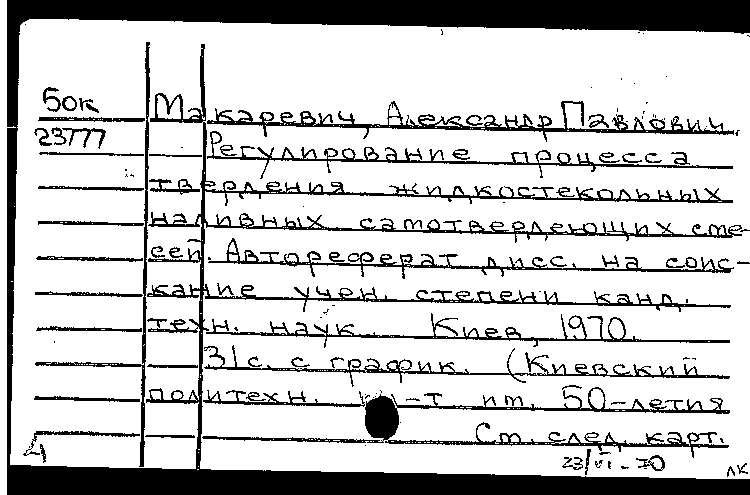 бок Макаревич, Александр Павлович.
23777 Регулирование процесса
твердения жидкостекольных
наливных самотвердеющих сме-
сей. Автореферат дисс. на соис-
кание учен. степени канд.
техн. наук. Киев, 1970.
31с. с график. (Киевский
политехн. -т им. 50-летия
См. след. карт.
4 23/VI-70 лк